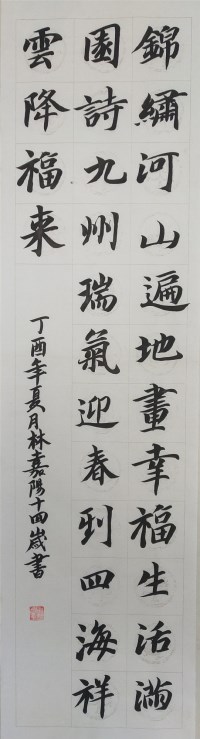 錦繡河山遍地畫幸福生活滿
園詩九州瑞氣迎春到四海祥
雲降福来
丁酉年夏月林嘉陽十四歲書